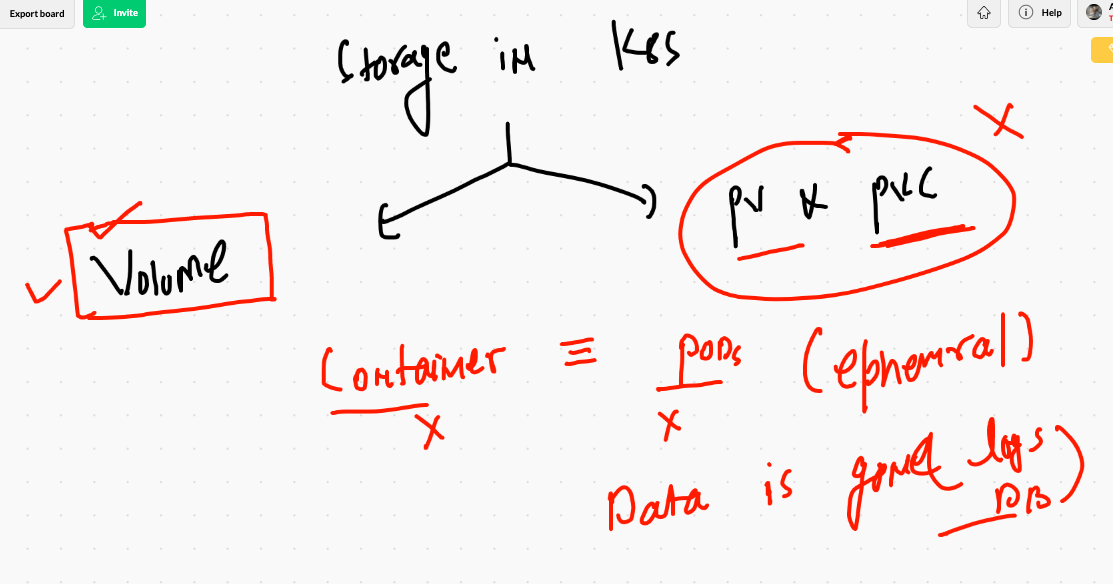 Export board
Invite
Help
Storage in K8S
PV & PVC
Volume
Container ≡ PODs (ephemral)
X X
Data is gone logs
DB)